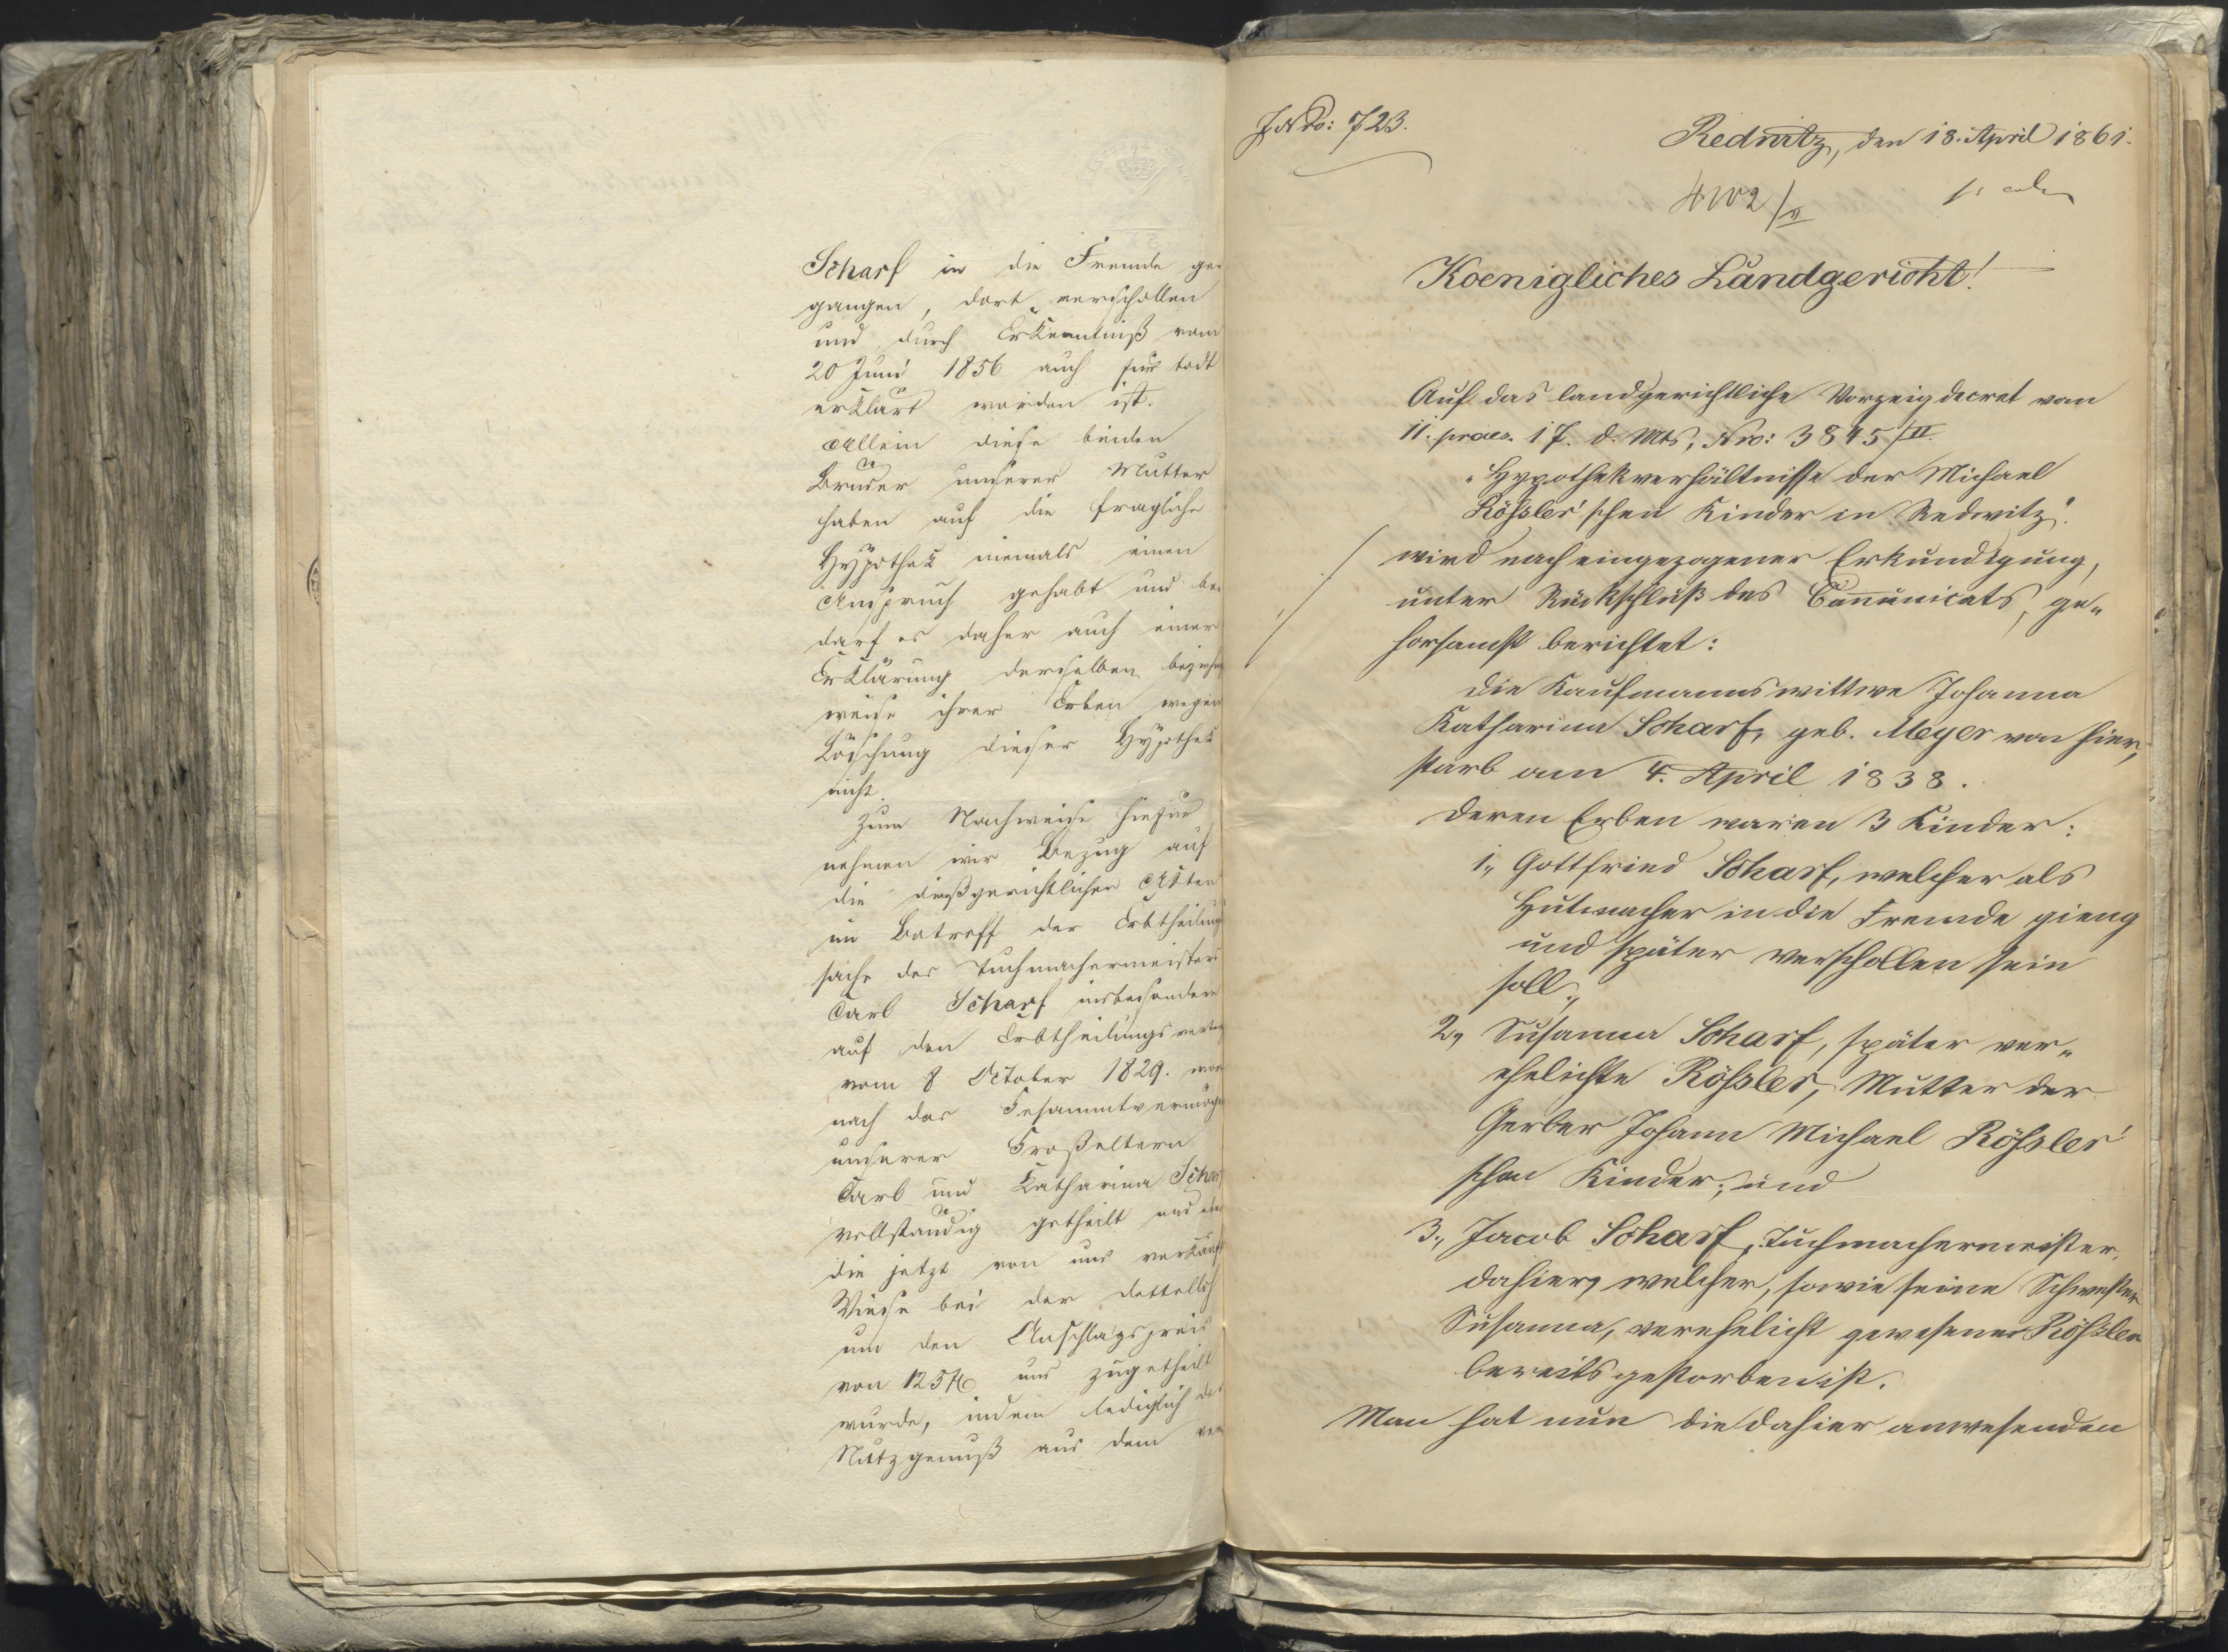 Scharf in die Fremde ge-
gangen, dort verschollen
und durch Erkenntniß vom
20 Juni 1856 auch für todt
erklärt worden ist.
Allein diese beiden
Brüder unserer Mutter
haben auf die fragliche
Hypothek niemals einen
Anspruch gehabt und be
darf es daher auch einer
Erklärung derselben beziehgs
weise ihrer Erben wegen
Löschung dieser Hypothek
nicht.
Zum Nachweise hiefür
nehmen wir Bezug auf
die dießgerichtlichen Akten
im Betreff der Erbtheilungs
sache des Tuchmachermeisters
Carl Scharf insbesondere
auf den Erbtheilungsvertrag
vom 8 October 1829. wor
nach das Gesammtvermögen
unserer Großeltern
Carl und Katharina Scharf
vollständig getheilt und
die jetzt von uns verkaufte
Wiese bei der
um den Anschlagspreis
von 125 f uns zugetheilt
wurde, indem lediglich der
Nutzgenuß aus dem
J. No: 723.
Redwitz, den 18. April 1861.
4102/II
Koenigliches Landgericht!
Auf das landgerichtliche Vorzeigdecret vom
11. praes. 17. d. Mts, Nro: 3845/II.
"Hypothekverhältnisse der Michael
Rößler'schen Kinder in Redwitz".
wird nach eingezogener Erkundigung,
unter Rückschluß des Com̄unicats, ge-
horsamst berichtet:
Die Kaufmannswittwe Johanna
Katharina Scharf, geb. Meyer von hier,
starb am 4. April 1838.
Deren Erben waren 3 Kinder:
1., Gottfried Scharf, welcher als
Hutmacher in die Fremde gieng
und später verschollen sein
soll.,
2., Susanna Scharf, später ver-
ehelichte Rößler, Mutter der
Gerber Johann Michael Rößler'
schen Kinder; und
3., Jacob Scharf, Tuchmachermeister,
dahier, welcher, sowie seine Schwester
Susanna, verehelicht gewesene Rößler
bereits gestorben ist.
Man hat nun die dahier anwesenden